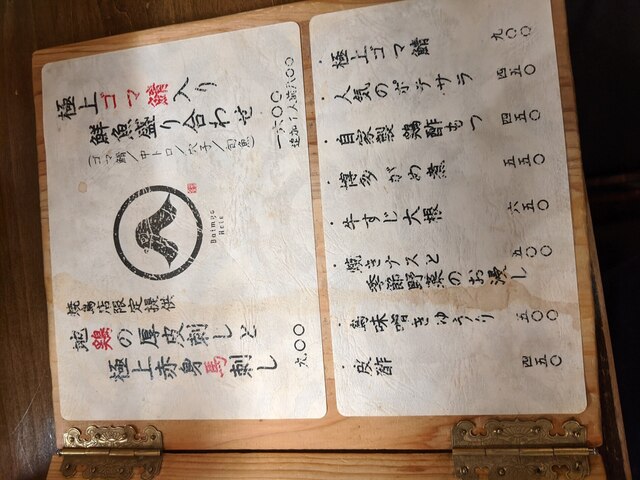 極上ゴマ鯖入り
鮮魚盛り合わせ
一六〇〇
追加1人前八〇〇
(ゴマ鯖/中トロ/穴子/旬魚)
Daimyo
焼鳥店限定提供
地鶏の厚皮刺しと
極上赤身馬刺し
九〇〇
・極上ゴマ鯖 九〇〇
・人気のポテサラ 四五〇
・自家製鶏酢もつ 四五〇
・博多がめ煮 五五〇
・牛すじ大根 六五〇
・焼きナスと
季節野菜のお浸し 五〇〇
・鶏味噌きゅうり 五〇〇
・皮酢 四五〇